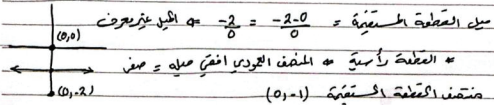 ميل القطعة المستقيمة = -2-0/0 = -2/0 => الميل غير معرف
(0,0)
* القطعة رأسية * المنصف العمودي افقي ميله = صفر
(0,-2)
منتصف القطعة المستقيمة (0,-1)